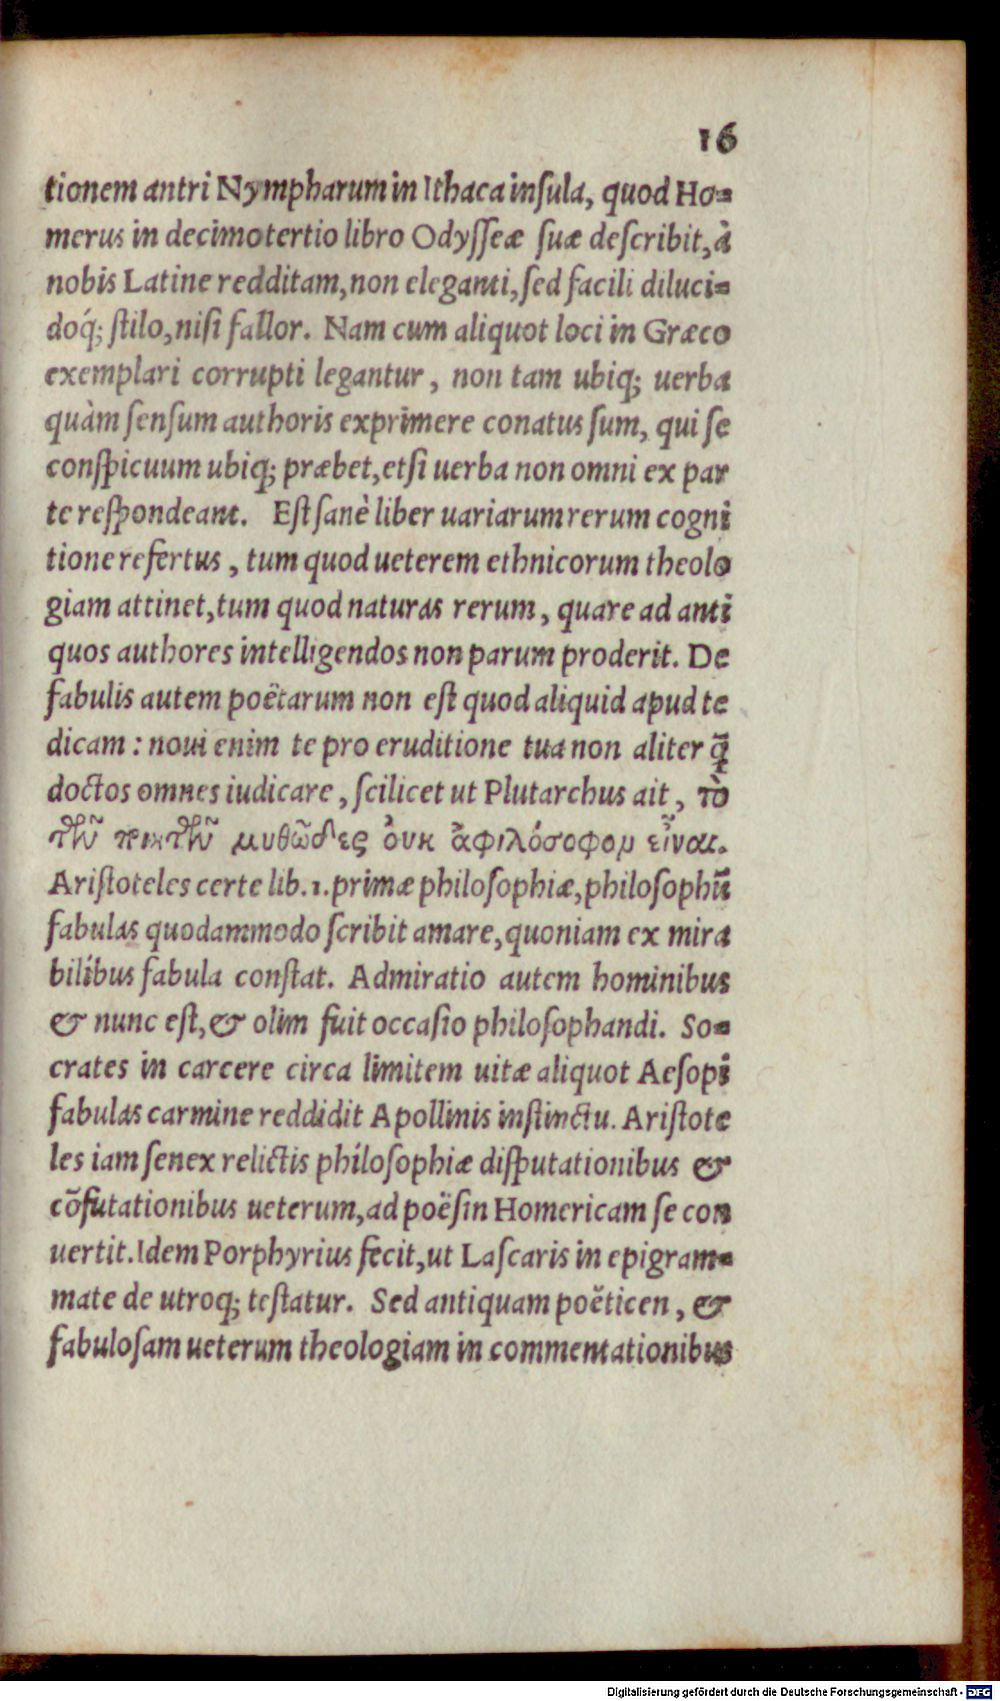 16
tionem antri Nympharum in Ithaca inſula, quod Ho-
merus in decimotertio libro Odyſſeæ ſuæ deſcribit, à
nobis Latine redditam, non eleganti, ſed facili diluci-
doq́; ſtilo, niſi fallor. Nam cum aliquot loci in Græco
exemplari corrupti legantur, non tam ubiq; uerba
quàm ſenſum authoris exprimere conatus ſum, qui ſe
conſpicuum ubiq; præbet, etſi uerba non omni ex par
te reſpondeant. Eſt ſanè liber uariarum rerum cogni
tione refertus, tum quod ueterem ethnicorum theolo
giam attinet, tum quod naturas rerum, quare ad anti
quos authores intelligendos non parum proderit. De
fabulis autem poëtarum non eſt quod aliquid apud te
dicam: noui enim te pro eruditione tua non aliter q̄
doctos omnes iudicare, ſcilicet ut Plutarchus ait, τὸ
τῶν ποιητῶν μυθῶδες ὀυκ ἀφιλόσοφον εἶναι.
Ariſtoteles certe lib. 1. primæ philoſophiæ, philoſophū
fabulas quodammodo ſcribit amare, quoniam ex mira
bilibus fabula conſtat. Admiratio autem hominibus
& nunc eſt, & olim fuit occaſio philoſophandi. So-
crates in carcere circa limitem uitæ aliquot Aeſopi
fabulas carmine reddidit Apollinis inſtinctu. Ariſtote
les iam ſenex relictis philoſophiæ diſputationibus &
cōfutationibus ueterum, ad poëſin Homericam ſe con
uertit. Idem Porphyrius fecit, ut Laſcaris in epigram-
mate de utroq; teſtatur. Sed antiquam poëticen, &
fabuloſam ueterum theologiam in commentationibus
Digitalisierung gefördert durch die Deutsche Forschungsgemeinschaft - DFG